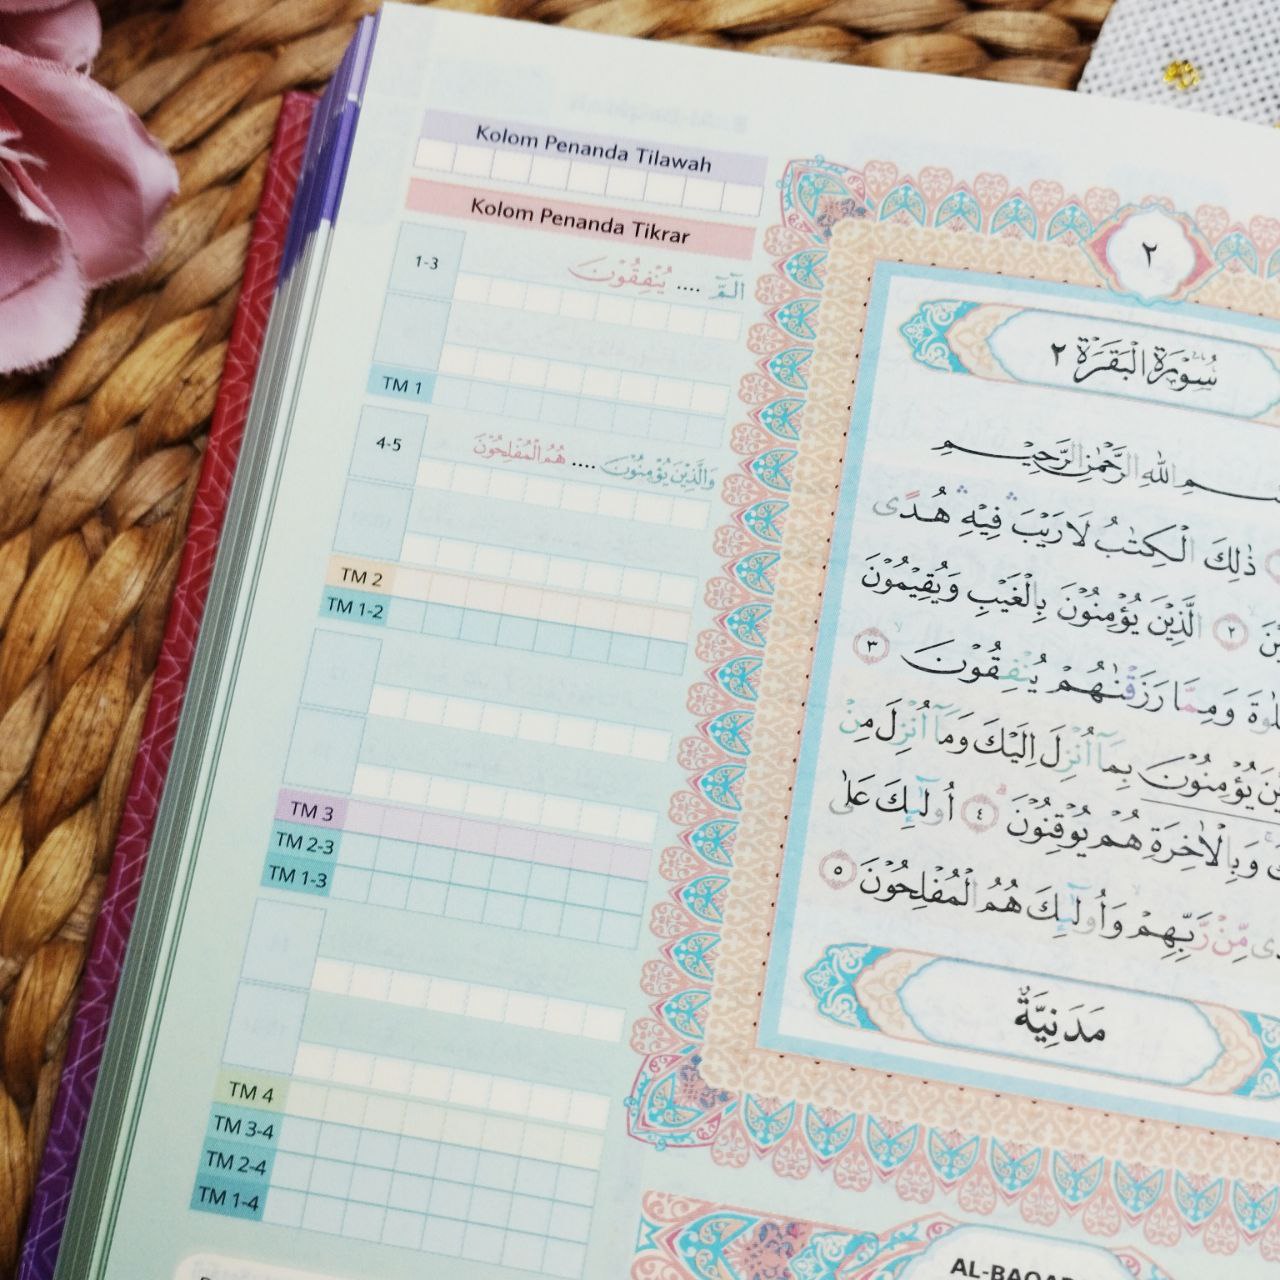 Kolom Penanda Tilawah
Kolom Penanda Tikrar
1-3
الٓمّٓ .... يُنْفِقُوْنَ
TM 1
4-5
وَالَّذِيْنَ يُؤْمِنُوْنَ .... هُمُ الْمُفْلِحُوْنَ
TM 2
TM 1-2
TM 3
TM 2-3
TM 1-3
TM 4
TM 3-4
TM 2-4
TM 1-4
٢
سُوْرَةُ الْبَقَرَةِ ٢
اللّٰهِ الرَّحْمٰنِ الرَّحِيْمِ
ذٰلِكَ الْكِتٰبُ لَا رَيْبَ فِيْهِ هُدًى
٢ الَّذِيْنَ يُؤْمِنُوْنَ بِالْغَيْبِ وَيُقِيْمُوْنَ
وَمِمَّا رَزَقْنٰهُمْ يُنْفِقُوْنَ ٣
يُؤْمِنُوْنَ بِمَآ اُنْزِلَ اِلَيْكَ وَمَآ اُنْزِلَ مِنْ
وَبِالْاٰخِرَةِ هُمْ يُوْقِنُوْنَ ٤ اُولٰۤىِٕكَ عَلٰى
مِّنْ رَّبِّهِمْ وَاُولٰۤىِٕكَ هُمُ الْمُفْلِحُوْنَ ٥
مَدَنِيَّةٌ